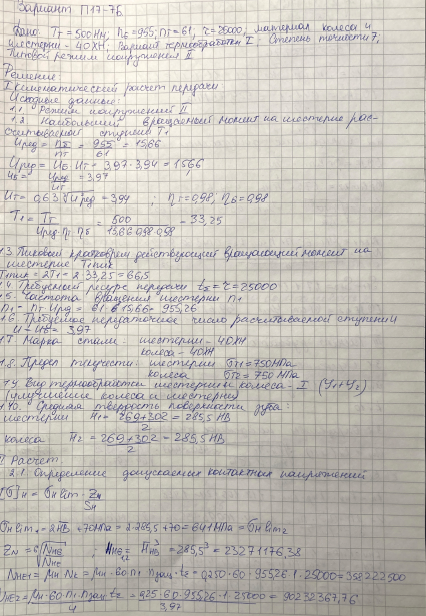 Вариант П17-7Б
Дано: Tт = 500 Нм, nб = 955, nт = 61, τ = 25000, материал колеса и
шестерни - 40ХН; Вариант термообработки I; Степень точности 7;
Типовой режим нагружения II
Решение:
I Кинематический расчет передачи
Исходные данные:
1.1. Режим нагружений II
1.2. Наибольший вращающий момент на шестерне рас-
считываемой ступени T1
Uред = nб/nт = 955/61 = 15,66
Uред = Uб · Uт = 3,97 · 3,94 = 15,66
Uб = Uред/Uт = 3,97
Uт = 0,63 √Uред = 3,94 ; ηт = 0,98; ηб = 0,98
T1 = Tт/(Uред · ηт · ηб) = 500/(15,66 · 0,98 · 0,98) = 33,25
1.3 Пиковой кратковрем действующий вращающий момент на
шестерне T1пик
T1пик = 2T1 = 2 · 33,25 = 66,5
1.4 Требуемый ресурс передачи tΣ = τ = 25000
1.5. Частота вращения шестерни n1
n1 = nт · Uред = 61 · 15,66 = 955,26
1.6 Требуемое передаточное число рассчитываемой ступени U
U = Uб = 3,97
1.7. Марка стали: шестерни - 40ХН
колеса - 40ХН
1.8. Предел текучести: шестерни σт1 = 750 МПа
колеса σт2 = 750 МПа
1.9 Вид термообработки шестерни и колеса - I (У1+У2)
(улучшение колеса и шестерни)
1.10. Средняя твердость поверхности зуба:
шестерни H1 = (269+302)/2 = 285,5 HB
колеса H2 = (269+302)/2 = 285,5 HB
II Расчет
2.1. Определение допускаемых контактных напряжений
[σ]H = σH lim · ZN/SH
σH lim1 = 2HB + 70 МПа = 2 · 285,5 + 70 = 641 МПа = σH lim2
ZN = ⁶√(NHB/NHE) ; NHB = HB³ = 285,5³ = 23271176,38
NHE1 = μH · NK = μH · 60 · n1 · nзац · tΣ = 0,250 · 60 · 955,26 · 1 · 25000 = 358222500
NHE2 = μH · 60 · n1 · nзац · tΣ/U = 0,25 · 60 · 955,26 · 1 · 25000/3,97 = 90232367,76